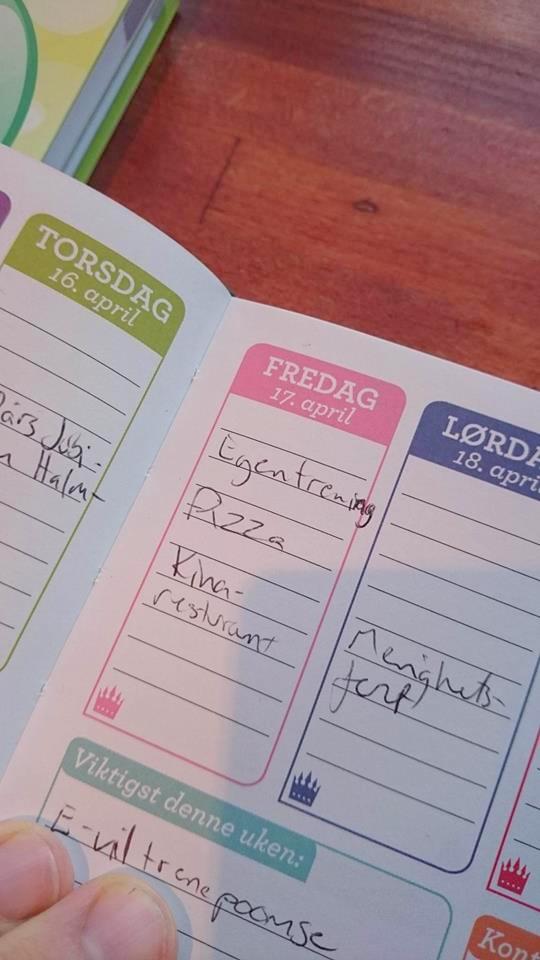 TORSDAG
16. april
års Jubi-
Halm-
FREDAG
17. april
Egentrening
Pizza
Kina-
resturant
LØRDA
18. apri
Menighets-
Viktigst denne uken:
E-vil trene poomse
Kont